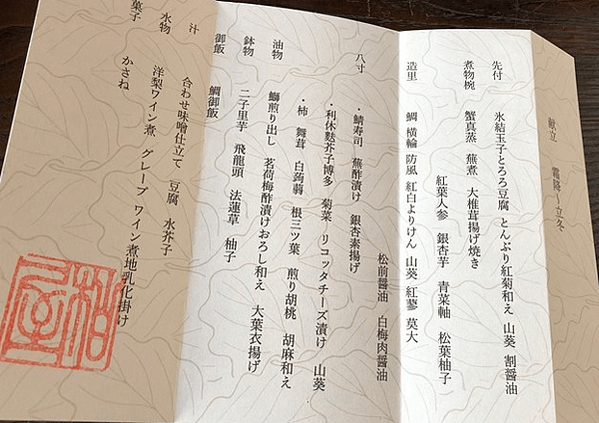 献立 霜降〜立冬
先付 氷結玉子とろろ豆腐 とんぶり紅菊和え 山葵 割醤油
煮物椀 蟹真蒸 蕪煮 大椎茸揚げ焼き
紅葉人参 銀杏芋 青菜軸 松葉柚子
造里 鯛 横輪 防風 紅白よりけん 山葵 紅蓼 莫大
松前醤油 白梅肉醤油
八寸 ・鯖寿司 蕪酢漬け 銀杏素揚げ
・利休麩芥子博多 菊菜 リコッタチーズ漬け 山葵
・柿 舞茸 白蒟蒻 根三ツ葉 煎り胡桃 胡麻和え
油物 鰤煎り出し 茗荷梅酢漬けおろし和え 大葉衣揚げ
鉢物 二子里芋 飛龍頭 法蓮草 柚子
御飯 鯛御飯
汁 合わせ味噌仕立て 豆腐 水芥子
水物 洋梨ワイン煮 グレープワイン煮地乳化掛け
菓子 かさね